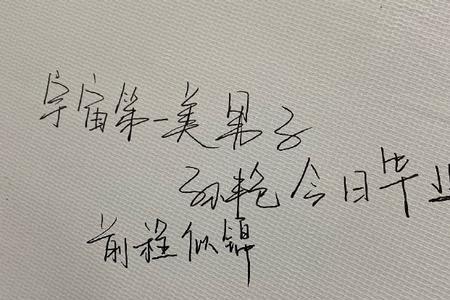 宇宙第一美男子
孙艳今日毕业
前程似锦